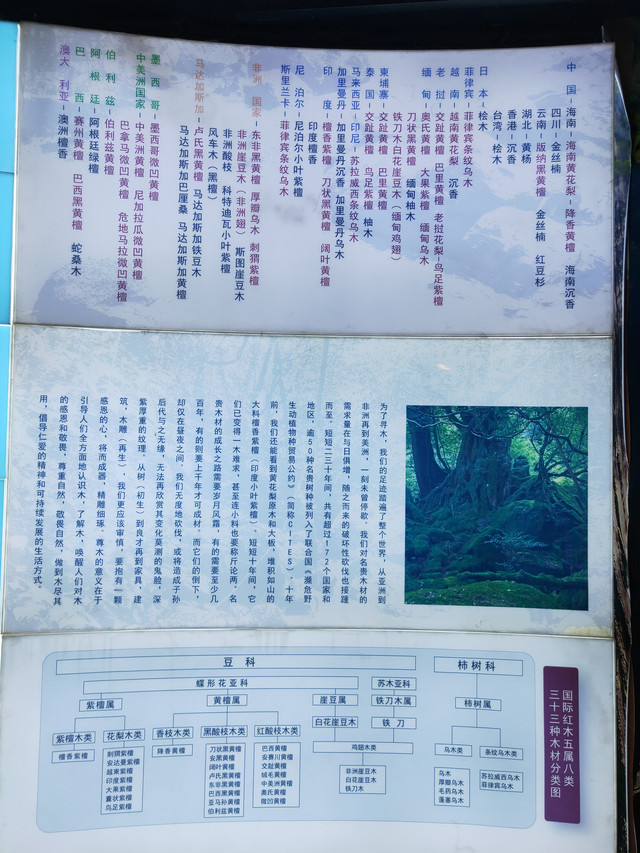 中 国－海南－海南黄花梨－降香黄檀 海南沉香
四川－金丝楠
云南－版纳黑黄檀 金丝楠 红豆杉
湖北－黄杨
香港－沉香
台湾－桧木
日 本－桧木
菲律宾－菲律宾条纹乌木
越 南－越南黄花梨 沉香
老 挝－交趾黄檀 巴里黄檀 老挝花梨－鸟足紫檀
缅 甸－奥氏黄檀 大果紫檀 缅甸乌木
刀状黑黄檀 缅甸柚木
铁刀木白花崖豆木（缅甸鸡翅）
柬埔寨－交趾黄檀 巴里黄檀
泰 国－交趾黄檀 鸟足紫檀 柚木
马来西亚·印尼－苏拉威西条纹乌木
加里曼丹－加里曼丹沉香 加里曼丹乌木
印 度－檀香紫檀 刀状黑黄檀 阔叶黄檀
印度檀香
尼 泊尔－尼泊尔小叶紫檀
斯里兰卡－菲律宾条纹乌木
非洲 国家－东非黑黄檀 厚瓣乌木 刺猬紫檀
非洲崖豆木（非洲翅） 斯图崖豆木
非洲酸枝 科特迪瓦小叶紫檀
风车木（黑檀）
马达加斯加－卢氏黑黄檀 马达加斯加铁豆木
马达加斯加巴厘桑 马达加斯加黄檀
墨 西 哥－墨西哥微凹黄檀
中美洲国家－中美洲黄檀 尼加拉瓜微凹黄檀
巴拿马微凹黄檀 危地马拉微凹黄檀
伯 利 兹－伯利兹黄檀
阿 根 廷－阿根廷绿檀
巴 西－赛州黄檀 巴西黑黄檀 蛇桑木
澳大 利亚－澳洲檀香
为了寻木，我们的足迹踏遍了整个世界，从亚洲到
非洲再到美洲，一刻未曾停歇，我们对名贵木材的
需求量在与日俱增，随之而来的破坏性砍伐也接踵
而至。短短二三十年间，共有超过172个国家和
地区，逾50种名贵树种被列入了联合国《濒危野
生动植物种贸易公约》（简称CITES）。十年
前，我们还能看到黄花梨原木和大板，堆积如山的
大料檀香紫檀（印度小叶紫檀），短短十年间，它
们已变得一木难求，甚至连小料也要称斤论两，名
贵木材的成长之路需要岁月风霜，有的需要至少几
百年，有的则要上千年才可成材，而它们的倒下，
却仅在昼夜之间，我们无度地砍伐，或将造成子孙
后代与之无缘，无法再欣赏其变化莫测的鬼脸，深
紫厚重的纹理。从树（初生）到良才再到家具、建
筑、木雕（再生），我们更应该审慎，要抱有一颗
感恩的心，将而成器，精雕细琢。尊木的意义在于
引导人们全方面地认识木，了解木，唤醒人们对木
的感恩和敬畏，尊重自然，敬畏自然，做到木尽其
用，倡导仁爱的精神和可持续发展的生活方式。
国际红木五属八类
三十三种木材分类图
豆科
柿树科
蝶形花亚科
苏木亚科
紫檀属
黄檀属
崖豆属
铁刀木属
柿树属
紫檀木类
花梨木类
香枝木类
黑酸枝木类
红酸枝木类
白花崖豆木
铁刀
鸡翅木类
乌木类
条纹乌木类
檀香紫檀
刺猬紫檀
安达曼紫檀
越柬紫檀
印度紫檀
大果紫檀
囊状紫檀
鸟足紫檀
降香黄檀
刀状黑黄檀
黑黄檀
阔叶黄檀
卢氏黑黄檀
东非黑黄檀
巴西黑黄檀
亚马孙黄檀
伯利兹黄檀
巴西黄檀
赛州黄檀
交趾黄檀
绒毛黄檀
中美洲黄檀
奥氏黄檀
微凹黄檀
非洲崖豆木
白花崖豆木
铁刀木
乌木
厚瓣乌木
毛药乌木
蓬塞乌木
苏拉威西乌木
菲律宾乌木